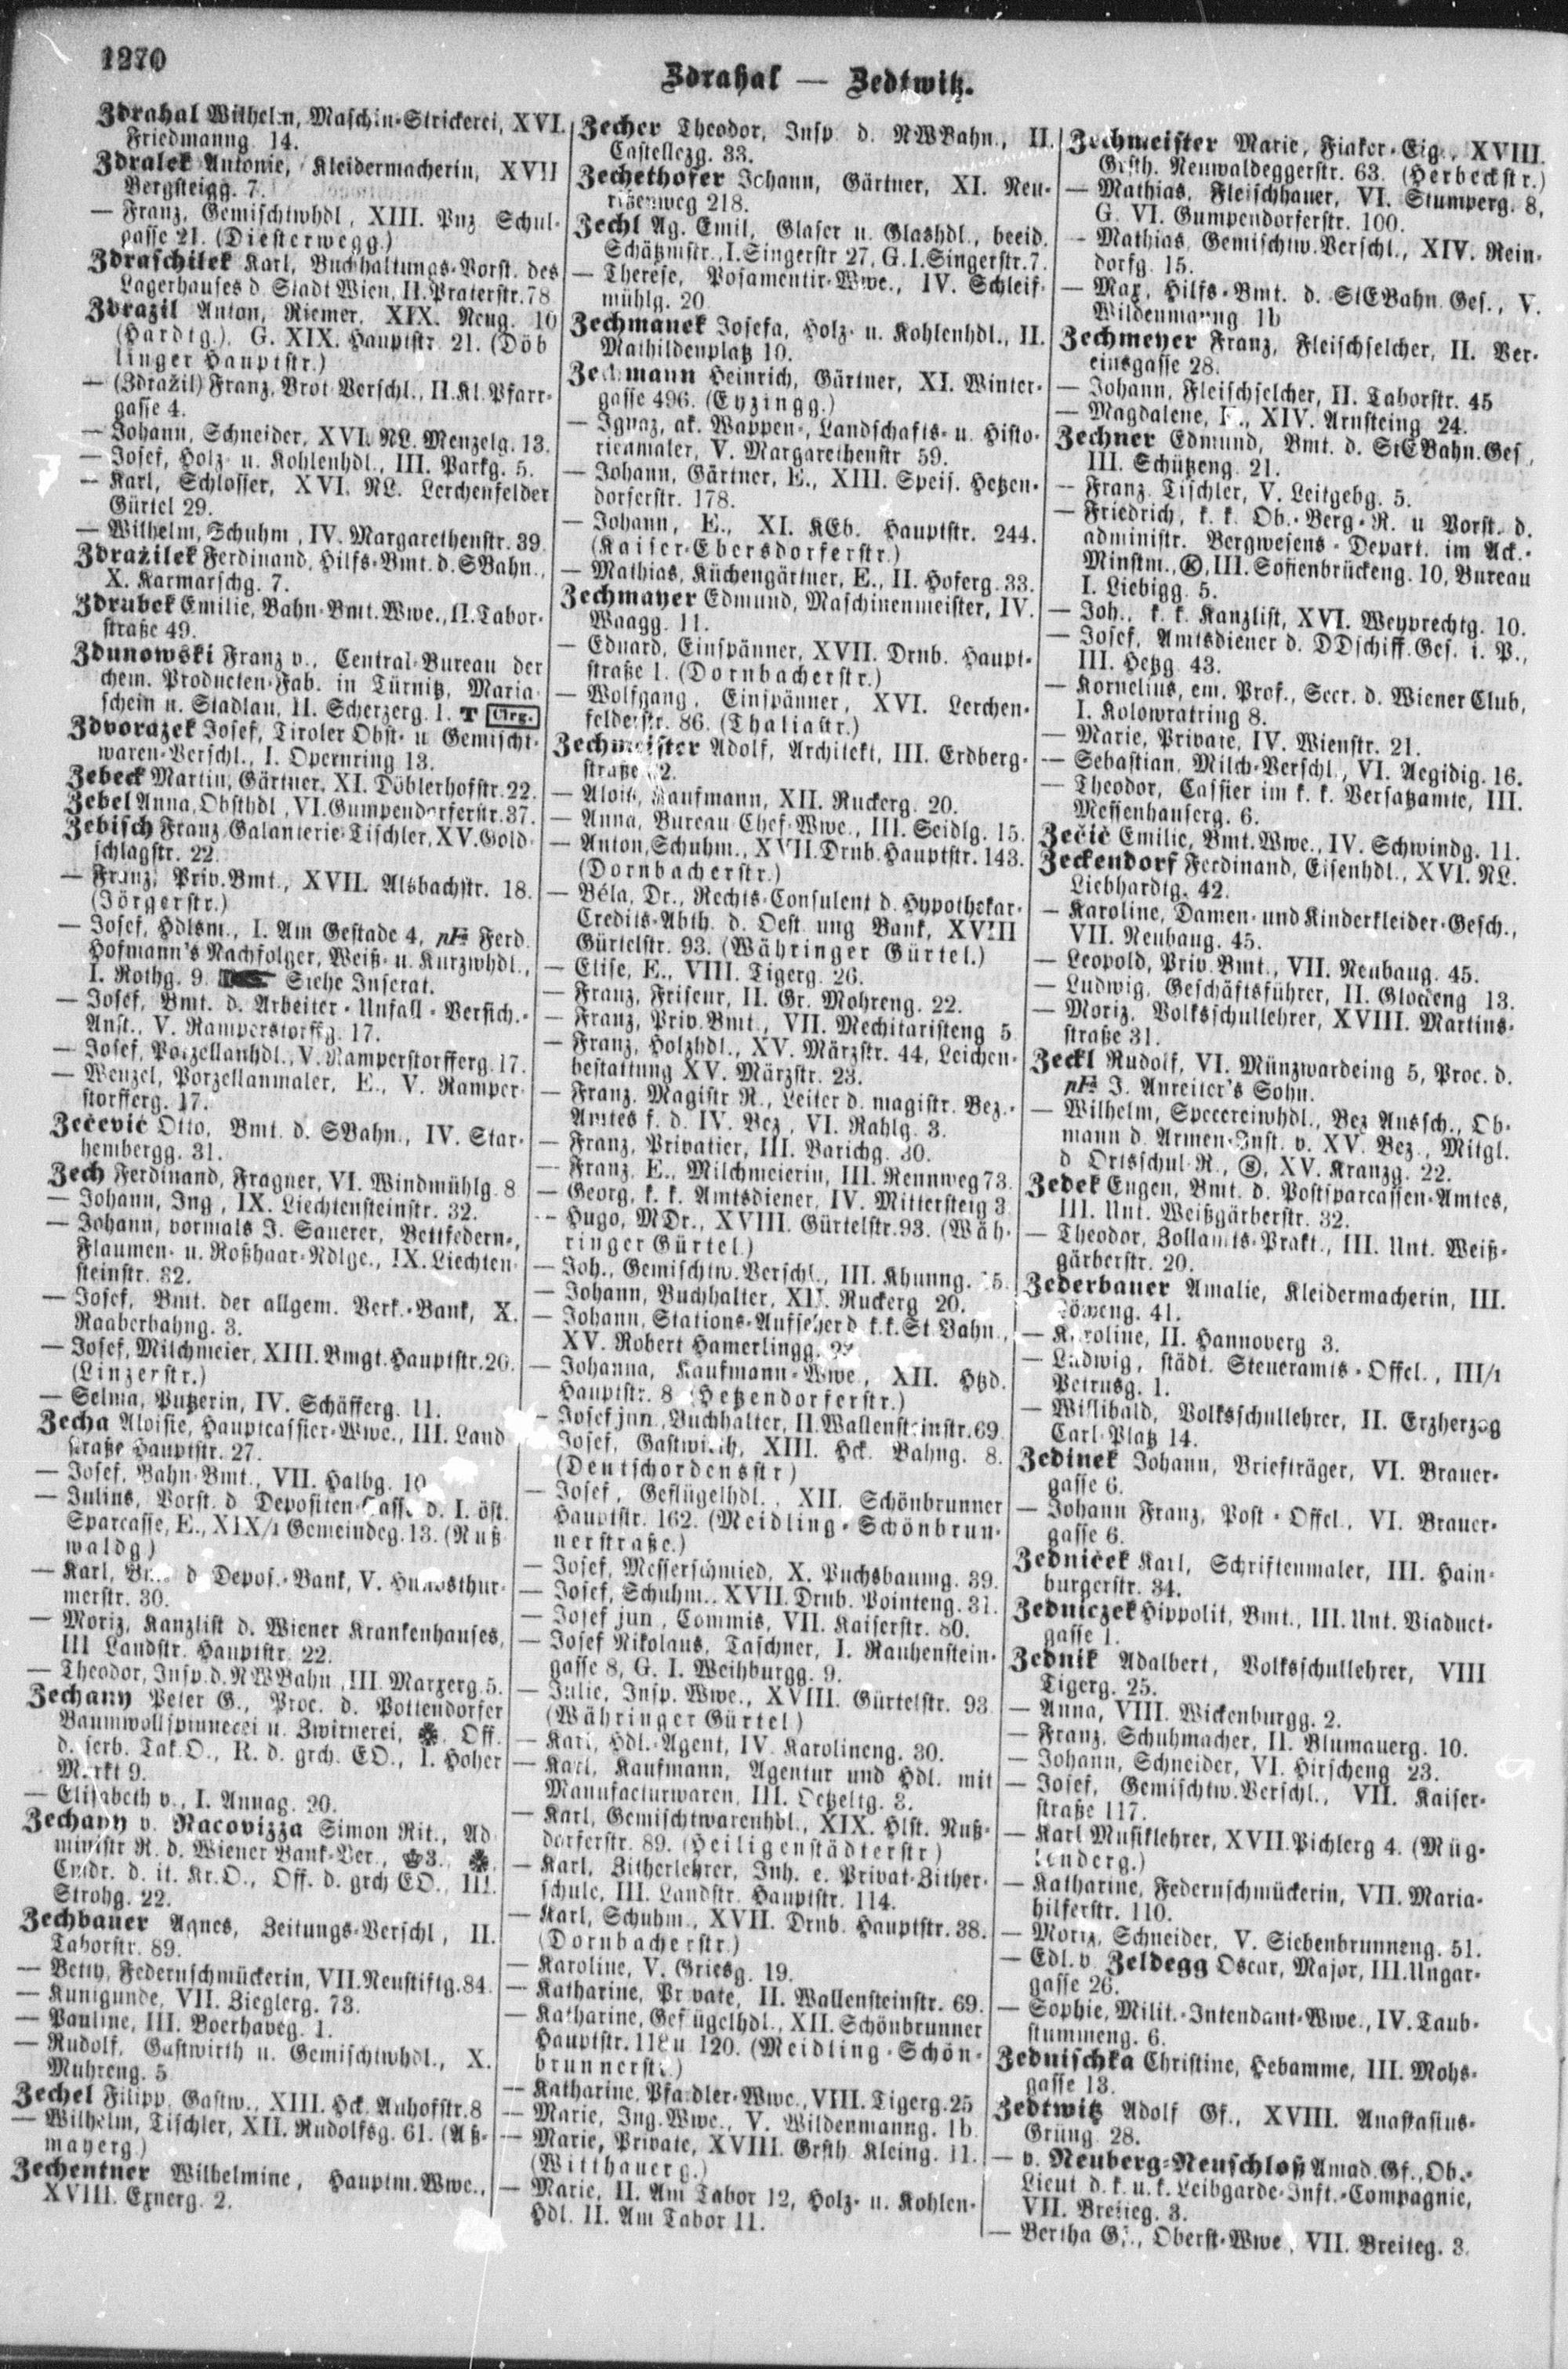 1270
Zdrahal — Zedtwitz.
Zdrahal Wilhelm, Maschin-Strickerei, XVI.
Friedmanng 14.
Zdralek Antonie, Kleidermacherin, XVII
Bergsteigg. 7.
— Franz, Gemischtwhdl, XIII. Pnz Schul-
gasse 21. (Diesterwegg.)
Zdraschilek Karl, Buchhaltungs-Vorst. des
Lagerhauses d Stadt Wien, II. Praterstr. 78
Zdrazil Anton, Riemer, XIX. Neug. 10
(Hardtg.). G. XIX. Hauptstr. 21. (Döb
linger Hauptstr.)
— (Zdražil) Franz, Brot-Verschl., II. Kl. Pfarr-
gasse 4.
— Johann, Schneider, XVI. NL. Menzelg. 13.
— Josef, Holz- u. Kohlenhdl., III. Parkg. 5.
— Karl, Schlosser, XVI. NL. Lerchenfelder
Gürtel 29.
— Wilhelm, Schuhm, IV. Margarethenstr. 39.
Zdražilek Ferdinand, Hilfs-Bmt. d. SBahn.,
X. Karmarschg. 7.
Zdrubek Emilie, Bahn-Bmt. Wwe., II. Tabor-
straße 49.
Zdunowski Franz v., Central-Bureau der
chem. Producten-Fab. in Türnitz, Maria
schein u. Stadlau, II. Scherzerg. 1. T Clrg.
Zdvorazek Josef, Tiroler Obst- u Gemischt-
waren-Verschl., I. Opernring 13.
Zebeck Martin, Gärtner, XI. Döblerhofstr. 22.
Zebel Anna, Obsthdl, VI. Gumpendorferstr. 37.
Zebisch Franz, Galanterie-Tischler, XV. Gold-
schlagstr. 22.
— Franz, Priv. Bmt., XVII. Alsbachstr. 18.
(Jörgerstr.)
— Josef, Hdlsm., I. Am Gestade 4, pF. Ferd.
Hofmann's Nachfolger, Weiß- u. Kurzwhdl.,
I. Rothg. 9. Siehe Inserat.
— Josef, Bmt. d. Arbeiter-Unfall-Versich.-
Anst., V. Ramperstorffg. 17.
— Josef, Porzellanhdl., V. Ramperstorfferg. 17.
— Wenzel, Porzellanmaler, E., V. Ramper-
storfferg. 17.
Zečevič Otto, Bmt. d. SBahn., IV. Star-
hembergg. 31.
Zech Ferdinand, Fragner, VI. Windmühlg. 8
— Johann, Ing, IX. Liechtensteinstr. 32.
— Johann, vormals J. Sauerer, Bettfedern-,
Flaumen- u. Roßhaar-Ndlge., IX. Liechten-
steinstr. 32.
— Josef, Bmt. der allgem. Verk.-Bank, X.
Raaberbahng. 3.
— Josef, Milchmeier, XIII. Bmgt. Hauptstr. 20.
(Linzerstr.)
— Selma, Putzerin, IV. Schäfferg. 11.
Zecha Aloisie, Hauptcassier-Wwe., III. Land
straße Hauptstr. 27.
— Josef, Bahn-Bmt., VII. Halbg. 10
— Julius, Vorst. d. Depositen-Casse d. I. öst.
Sparcasse, E., XIX/1 Gemeindeg. 13. (Nuß
waldg)
— Karl, d Depos.-Bank, V. Hundsthur-
merstr. 30.
— Moriz, Kanzlist d. Wiener Krankenhauses,
III Landstr. Hauptstr. 22.
— Theodor, Insp. d. NWBahn, III. Marxerg. 5.
Zechany Peter G., Proc. d. Pottendorfer
Baumwollspinnerei u. Zwirnerei, Off.
d. serb. Tak. O., R. d. grch. EO., I. Hoher
Markt 9.
— Elisabeth v., I. Annag. 20.
Zechany v. Racovizza Simon Rit., Ad
ministr R. d. Wiener Bank-Ver., 3.,
Cmdr. d. it. Kr. O., Off. d. grch EO., III.
Strohg. 22.
Zechbauer Agnes, Zeitungs-Verschl, II.
Taborstr. 89.
— Betty, Federnschmückerin, VII. Neustiftg. 84.
— Kunigunde, VII. Zieglerg. 73.
— Pauline, III. Boerhaveg. 1.
— Rudolf, Gastwirth u. Gemischtwhdl., X.
Muhreng. 5
Zechel Filipp, Gastw., XIII. Hck. Auhofstr. 8
— Wilhelm, Tischler, XII. Rudolfsg. 61. (Aß-
mayerg.)
Zechentner Wilhelmine, Hauptm. Wwe.,
XVIII. Exnerg. 2.
Zecher Theodor, Insp d. NWBahn., II.
Castellezg. 33.
Zechethofer Johann, Gärtner, XI. Neu-
rißenweg 218.
Zechl Ag. Emil, Glaser u. Glashdl., beeid.
Schätzmstr., I. Singerstr 27, G. I. Singerstr. 7.
— Therese, Posamentir-Wwe., IV. Schleif-
mühlg. 20
Zechmanek Josefa, Holz- u. Kohlenhdl., II.
Mathildenplatz 10.
Zechmann Heinrich, Gärtner, XI. Winter-
gasse 496. (Eyzingg.)
— Ignaz, ak. Wappen-, Landschafts- u. Histo-
rienmaler, V. Margarethenstr 59.
— Johann, Gärtner, E., XIII. Speis. Hetzen-
dorferstr. 178.
— Johann, E., XI. KEb. Hauptstr. 244.
(Kaiser-Ebersdorferstr.)
— Mathias, Küchengärtner, E., II. Hoferg. 33.
Zechmayer Edmund, Maschinenmeister, IV.
Waagg. 11.
— Eduard, Einspänner, XVII. Drnb. Haupt-
straße 1. (Dornbacherstr.)
— Wolfgang, Einspänner, XVI. Lerchen-
felderstr. 86. (Thaliastr.)
Zechmeister Adolf, Architekt, III. Erdberg-
straße
— Alois, Kaufmann, XII. Ruckerg. 20.
— Anna, Bureau-Chef-Wwe., III. Seidlg. 15.
— Anton, Schuhm., XVII. Drnb. Hauptstr. 143.
(Dornbacherstr.)
— Béla, Dr., Rechts-Consulent d. Hypothekar-
Credits-Abth. d. Oest. ung Bank, XVIII
Gürtelstr. 93. (Währinger Gürtel.)
— Elise, E., VIII. Tigerg. 26.
— Franz, Friseur, II. Gr. Mohreng. 22.
— Franz, Priv. Bmt., VII. Mechitaristeng 5
— Franz, Holzhdl., XV. Märzstr. 44, Leichen-
bestattung XV. Märzstr. 23.
— Franz, Magistr R., Leiter d. magistr. Bez.-
Amtes f. d. IV. Bez, VI. Rahlg. 3.
— Franz, Privatier, III. Barichg. 30.
— Franz, E., Milchmeierin, III. Rennweg 73.
— Georg, k. k. Amtsdiener, IV. Mittersteig 3
— Hugo, MDr., XVIII. Gürtelstr. 93. (Wäh-
ringer Gürtel.)
— Joh., Gemischtw. Verschl., III. Khunng.
— Johann, Buchhalter, XII. Ruckerg 20.
— Johann, Stations-Aufseher d. k. k. St. Bahn.,
XV. Robert Hamerlingg.
— Johanna, Kaufmann-Wwe., XII. Htzd.
Hauptstr. 8 (Hetzendorferstr.)
— Josef jun., Buchhalter, II. Wallensteinstr. 69
Josef, Gastwirth, XIII. Hck. Bahng. 8.
(Deutschordensstr)
— Josef, Geflügelhdl., XII. Schönbrunner
Hauptstr. 162. (Meidling-Schönbrun-
nerstraße.)
— Josef, Messerschmied, X. Puchsbaumg. 39.
— Josef, Schuhm., XVII. Drnb. Pointeng. 31.
— Josef jun, Commis, VII. Kaiserstr. 80.
— Josef Nikolaus, Taschner, I. Rauhenstein-
gasse 8, G. I. Weihburgg. 9.
— Julie, Insp. Wwe., XVIII. Gürtelstr. 93
(Währinger Gürtel)
— Karl, Hdl.-Agent, IV. Karolineng. 30.
— Karl, Kaufmann, Agentur und Hdl. mit
Manufacturwaren, III. Oetzeltg. 3.
— Karl, Gemischtwarenhdl., XIX. Hlst. Nuß-
dorferstr. 89. (Heiligenstädterstr)
— Karl, Zitherlehrer, Inh. e. Privat-Zither-
schule, III. Landstr. Hauptstr. 114.
— Karl, Schuhm., XVII. Drnb. Hauptstr. 38.
(Dornbacherstr.)
— Karoline, V. Griesg. 19.
— Katharine, Private, II. Wallensteinstr. 69.
— Katharine, Geflügelhdl., XII. Schönbrunner
Hauptstr. 118 u 120. (Meidling-Schön-
brunnerstr.)
— Katharine, Pfaidler-Wwe., VIII. Tigerg. 25
— Marie, Ing. Wwe., V. Wildenmanng. 1b
— Marie, Private, XVIII. Grsth. Kleing. 11.
(Witthauerg.)
— Marie, II. Am Tabor 12, Holz- u. Kohlen-
Hdl. II. Am Tabor 11.
Zechmeister Marie, Fiaker-Eig., XVIII.
Grsth. Neuwaldeggerstr. 63. (Herbeckstr.)
— Mathias, Fleischhauer, VI. Stumperg. 8,
G. VI. Gumpendorferstr. 100.
— Mathias, Gemischtw. Verschl., XIV. Rein-
dorfg. 15.
— Max, Hilfs-Bmt. d. StEBahn. Ges., V.
Wildenmanng 1b
Zechmeyer Franz, Fleischselcher, II. Ver-
einsgasse 28.
— Johann, Fleischselcher, II. Taborstr. 45
— Magdalene, XIV. Arnsteing 24.
Zechner Edmund, Bmt. d. StEBahn. Ges.,
III. Schützeng. 21.
— Franz, Tischler, V. Leitgebg. 5.
— Friedrich, k. k. Ob.-Berg-R. u Vorst. d.
administr. Bergwesens-Depart. im Ack.-
Minstm., K, III. Sofienbrückeng. 10, Bureau
I. Liebigg. 5.
— Joh., k. k. Kanzlist, XVI. Weyprechtg. 10.
— Josef, Amtsdiener d. DDschiff. Ges. i. P.,
III. Hetzg. 43.
— Kornelius, em. Prof., Secr. d. Wiener Club,
I. Kolowratring 8.
— Marie, Private, IV. Wienstr. 21.
— Sebastian, Milch-Verschl., VI. Aegidig. 16.
— Theodor, Cassier im k. k. Versatzamte, III.
Messenhauserg. 6.
Zečić Emilie, Bmt. Wwe., IV. Schwindg. 11.
Zeckendorf Ferdinand, Eisenhdl., XVI. NL.
Liebhardtg. 42.
— Karoline, Damen- und Kinderkleider-Gesch.,
VII. Neubaug. 45.
— Leopold, Priv. Bmt., VII. Neubaug. 45.
— Ludwig, Geschäftsführer, II. Glockeng 13.
— Moriz, Volksschullehrer, XVIII. Martins-
straße 31.
Zeckl Rudolf, VI. Münzwardeing 5, Proc. d.
pF. J. Anreiter's Sohn.
— Wilhelm, Specereiwhdl., Bez Aussch., Ob-
mann d. Armen-Inst. v. XV. Bez., Mitgl.
d Ortsschul-R., S, XV. Kranzg. 22.
Zedek Eugen, Bmt. d. Postsparcassen-Amtes,
III. Unt. Weißgärberstr. 32.
— Theodor, Zollamts-Prakt., III. Unt. Weiß-
gärberstr. 20.
Zederbauer Amalie, Kleidermacherin, III.
Löweng. 41.
— Karoline, II. Hannoverg 3.
— Ludwig, städt. Steueramts-Offcl., III/1
Petrusg. 1.
— Willibald, Volksschullehrer, II. Erzherzog
Carl-Platz 14.
Zedinek Johann, Briefträger, VI. Brauer-
gasse 6.
— Johann Franz, Post-Offcl., VI. Brauer-
gasse 6.
Zedniček Karl, Schriftenmaler, III. Hain-
burgerstr. 34.
Zedniczek Hippolit, Bmt., III. Unt. Viaduct-
gasse 1.
Zednik Adalbert, Volksschullehrer, VIII
Tigerg. 25.
— Anna, VIII. Wickenburgg. 2.
— Franz, Schuhmacher, II. Blumauerg. 10.
— Johann, Schneider, VI. Hirscheng 23.
— Josef, Gemischtw. Verschl., VII. Kaiser-
straße 117.
— Karl Musiklehrer, XVII. Pichlerg 4. (Müg-
lenderg.)
— Katharine, Federnschmückerin, VII. Maria-
hilferstr. 110.
— Moriz, Schneider, V. Siebenbrunneng. 51.
— Edl. v. Zeldegg Oscar, Major, III. Ungar-
gasse 26.
— Sophie, Milit.-Intendant-Wwe., IV. Taub-
stummeng. 6.
Zednischka Christine, Hebamme, III. Mohs-
gasse 13.
Zedtwitz Adolf Gf., XVIII. Anastasius-
Grüng 28.
— v. Neuberg-Neuschloß Amad. Gf., Ob.-
Lieut d. k. u. k. Leibgarde-Inft.-Compagnie,
VII. Breiteg. 3.
— Bertha Gf., Oberst-Wwe, VII. Breiteg. 3.